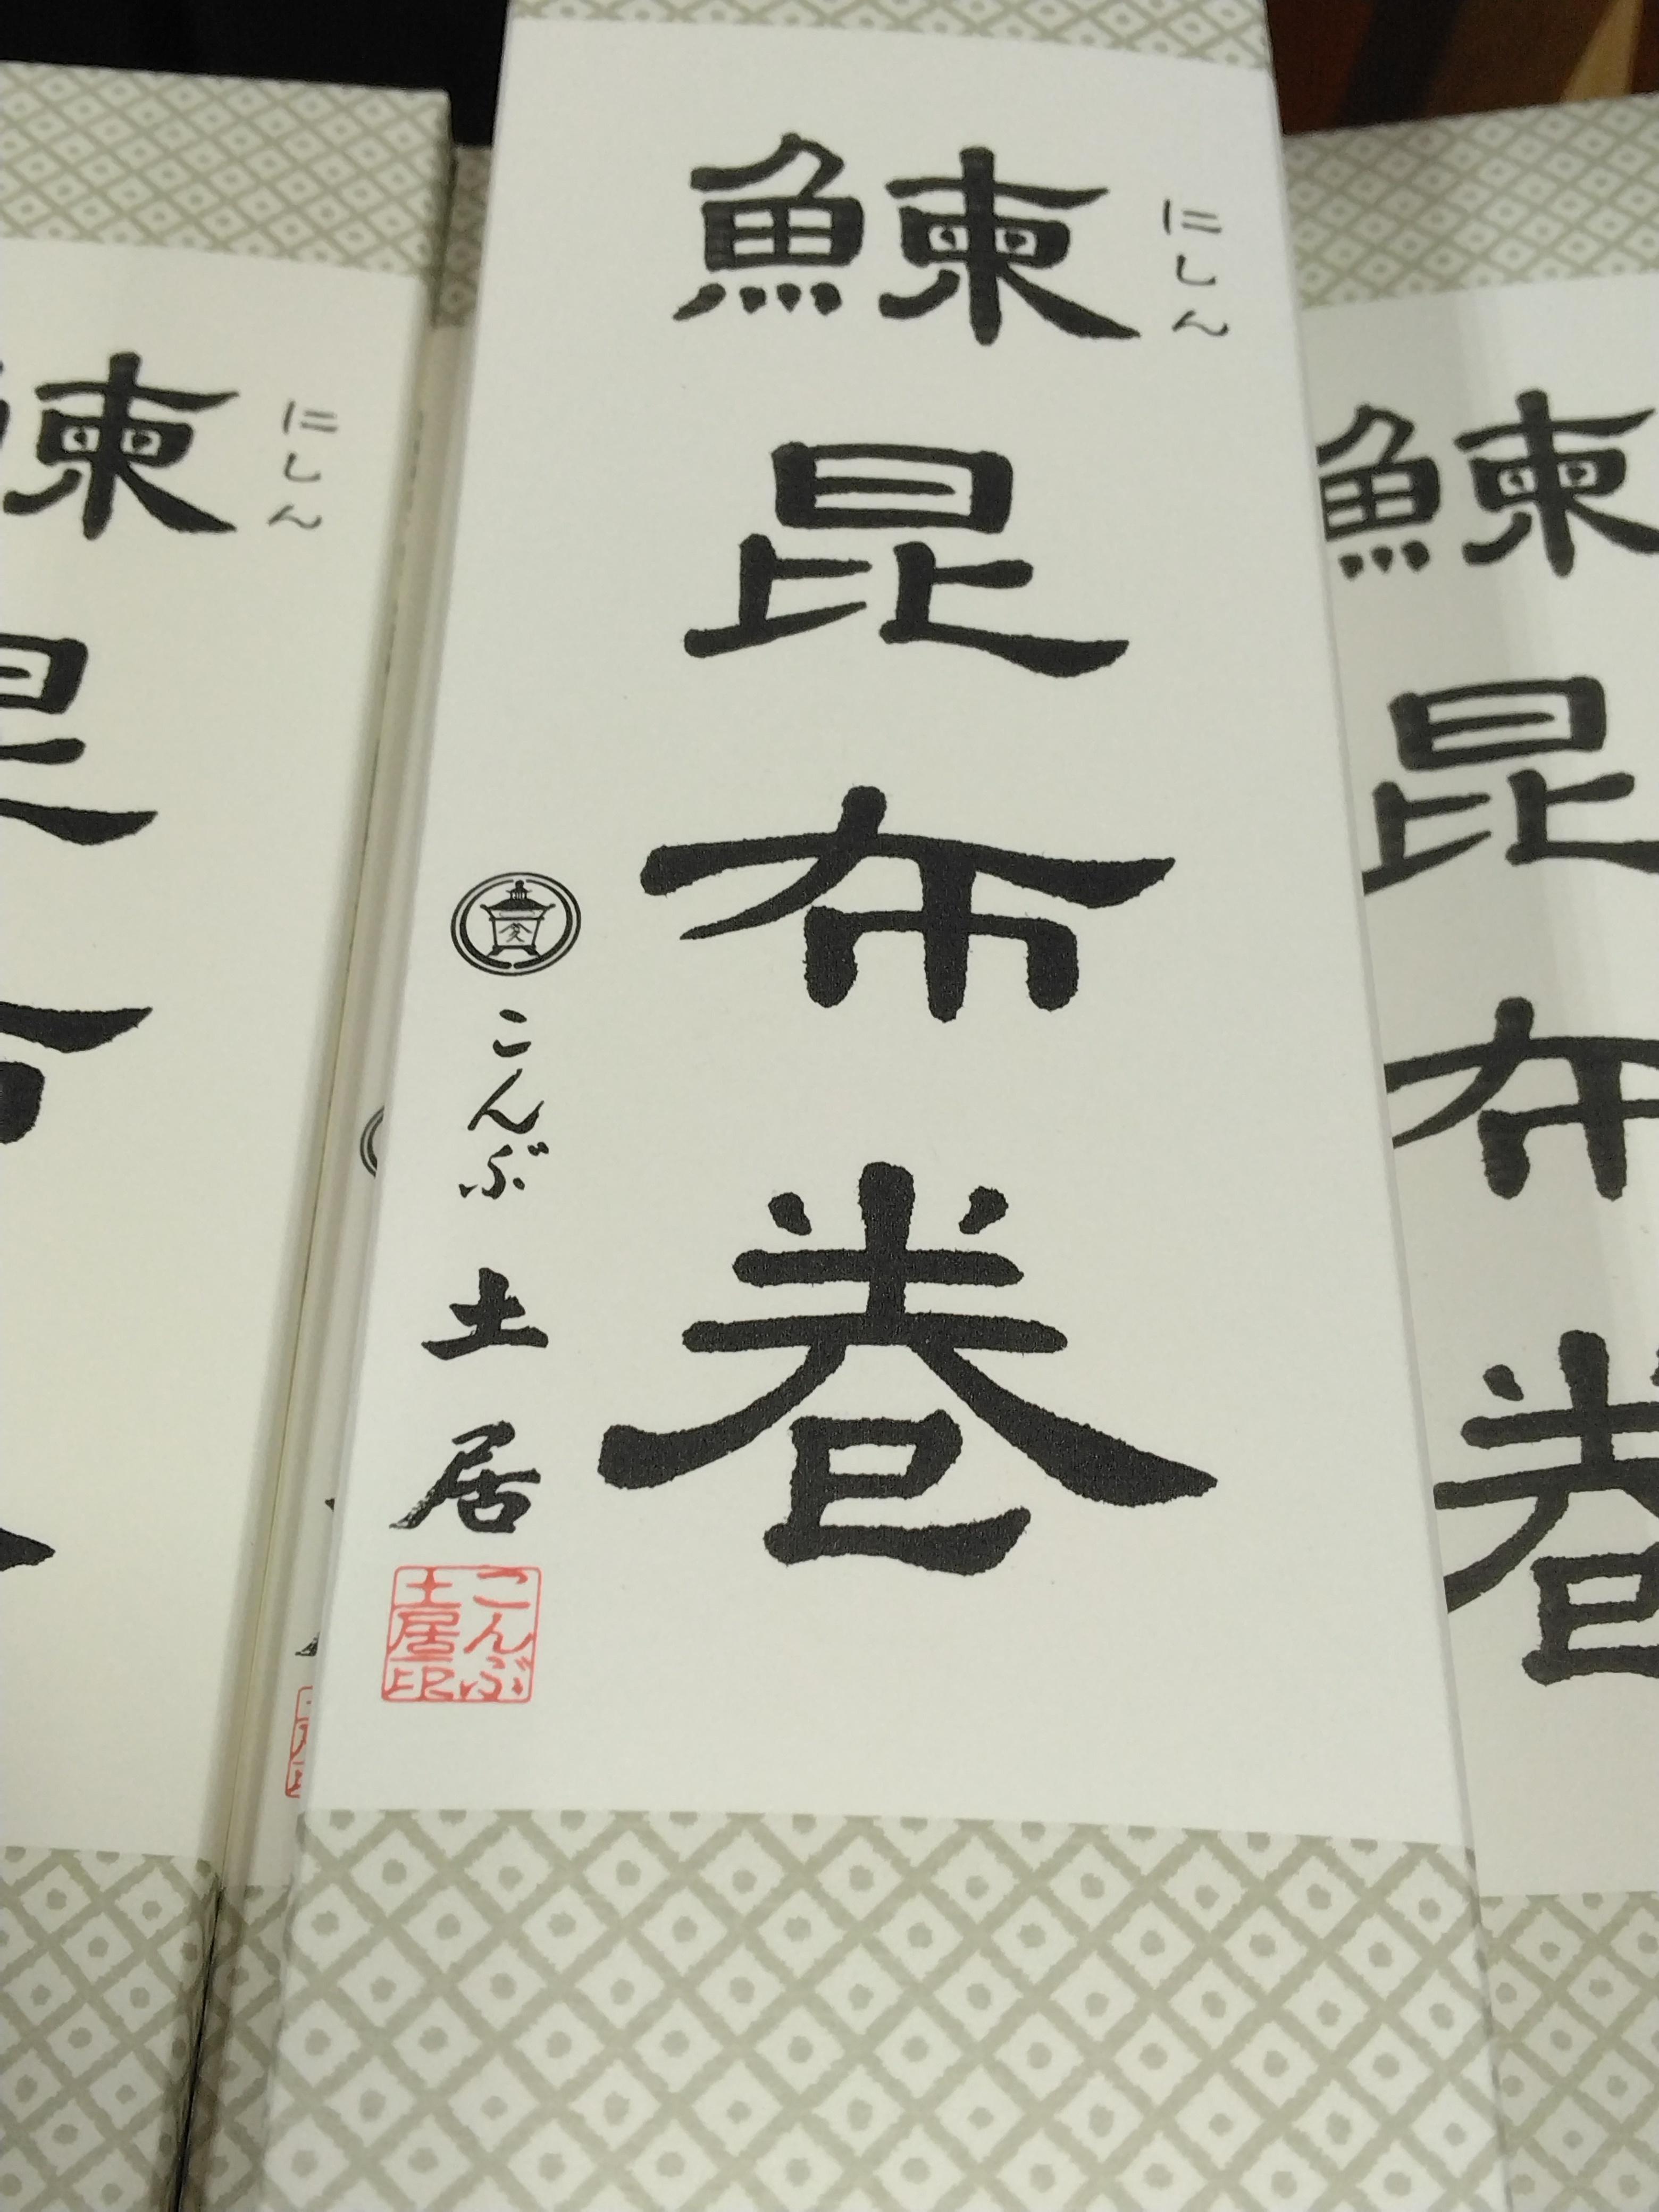 鰊昆布巻
にしん
こんぶ土居
こんぶ
土居印
鰊
にしん
昆
布
鰊昆布巻